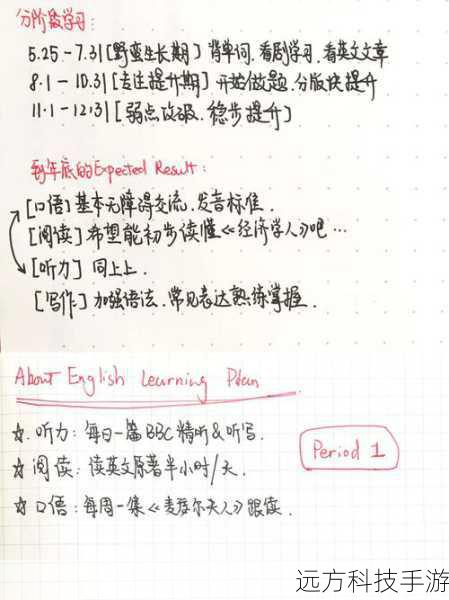 分阶段学习:
5.25-7.31[野蛮生长期]背单词.看剧学习.看英文文章
8.1-10.31[专注提升期]开始做题.分版块提升
11.1-12.31[弱点攻破.稳步提升]
到年底的Expected Result:
[口语]基本无障碍交流.发音标准.
[阅读]希望能初步读懂《经济学人》吧…
[听力]同上上.
[写作]加强语法.常见表达熟练掌握.
About English Learning Plan
☆.听力:每日一篇BBC精听&听写.
☆阅读:读英文原著半小时/天.
☆口语:每周一集《麦瑟尔夫人》跟读.
Period 1
远方科技手游